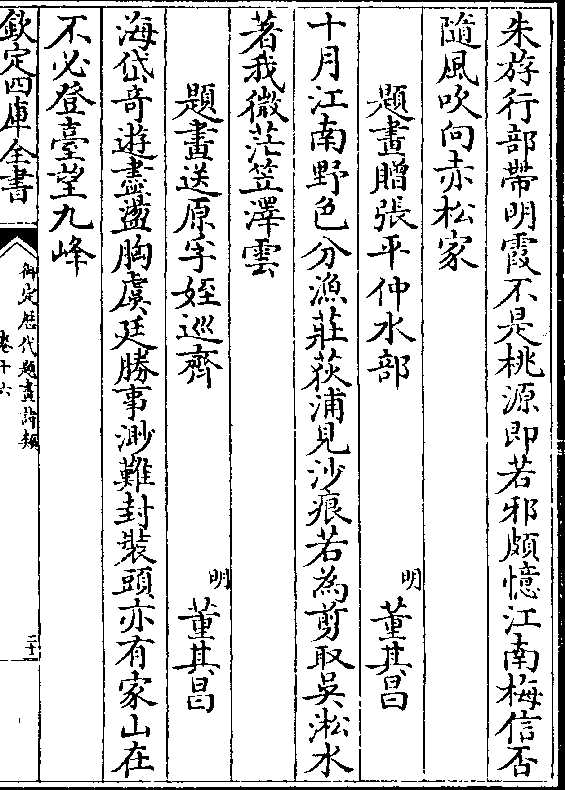 朱斿行部帶明霞不是桃源即若邪頗憶江南梅信否
隨風吹向赤松家
題畫贈張平仲水部
明董其昌
十月江南野色分漁莊荻浦見沙痕若為剪取吳淞水
著我微茫笠澤雲
題畫送原孚姪巡齊
明董其昌
海岱奇遊盡盪胸虞廷勝事渺難封裝頭亦有家山在
不必登臺望九峰
欽定四庫全書
御定歴代題畫詩類
卷十六
二十